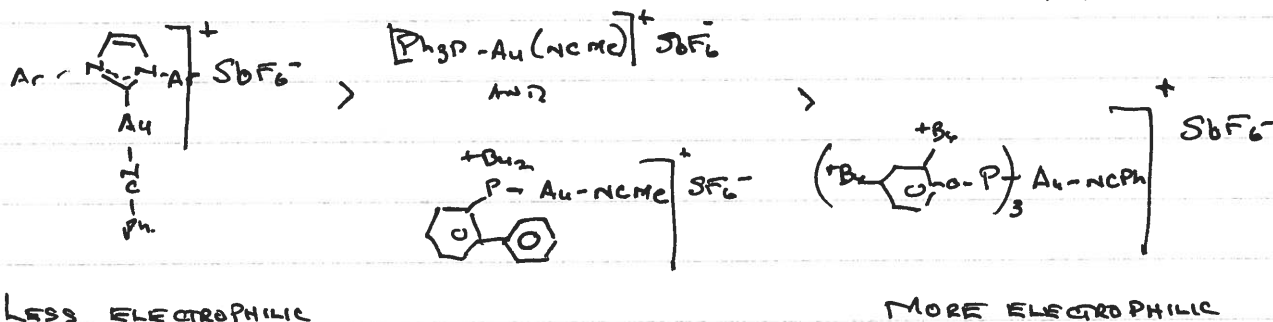 Ar N N-Ar]⁺ SbF₆⁻ > [Ph₃P-Au(NCMe)]⁺ SbF₆⁻ >
AND
Au
N
C
Ph.
tBu₂
P-Au-NCMe]⁺ SF₆⁻
tBu
(tBu O-P)₃ Au-NCPh]⁺ SbF₆⁻
LESS ELECTROPHILIC MORE ELECTROPHILIC